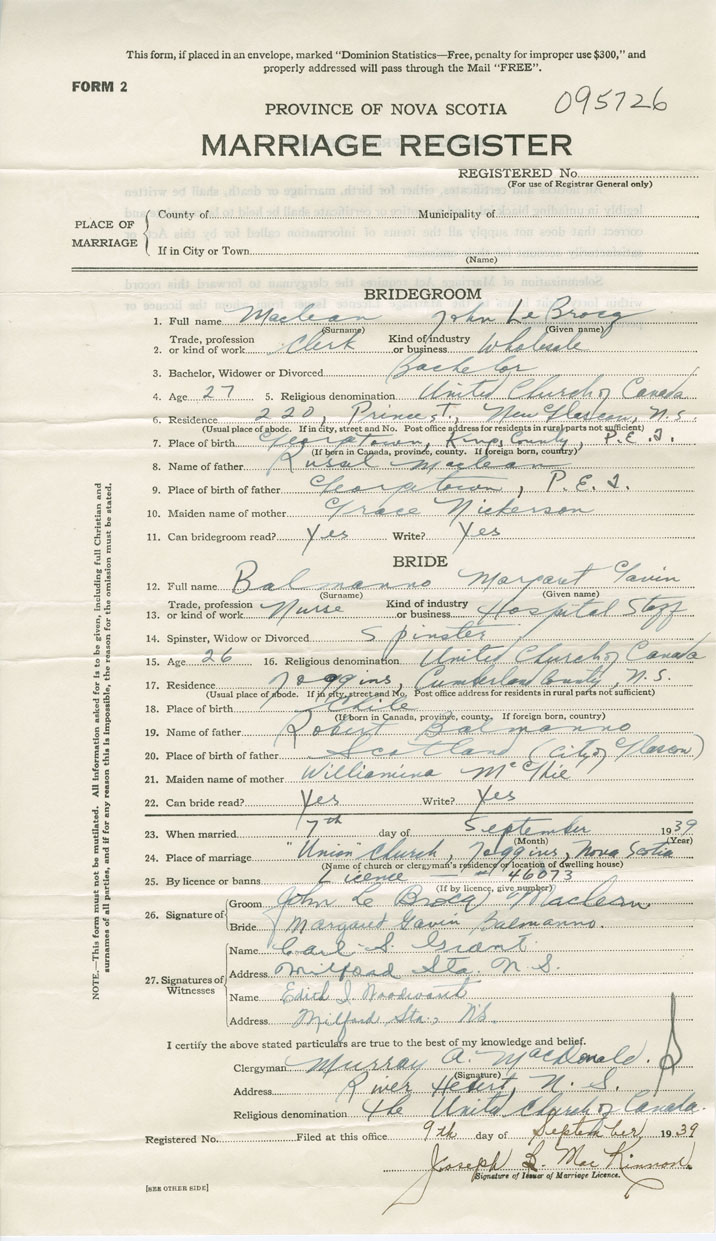 This form, if placed in an envelope, marked "Dominion Statistics—Free, penalty for improper use $300," and
properly addressed will pass through the Mail "FREE".
FORM 2
095726
PROVINCE OF NOVA SCOTIA
MARRIAGE REGISTER
REGISTERED No.
(For use of Registrar General only)
PLACE OF MARRIAGE
County of Municipality of
If in City or Town
(Name)
BRIDEGROOM
1. Full name Maclean John Le Brocq
(Surname) (Given name)
2. Trade, profession or kind of work Clerk Kind of industry or business Wholesale
3. Bachelor, Widower or Divorced Bachelor
4. Age 27 5. Religious denomination United Church of Canada
6. Residence 220, Prince St., New Glasgow, N.S.
(Usual place of abode. If in city, street and No. Post office address for residents in rural parts not sufficient)
7. Place of birth Georgetown, Kings County, P.E.I.
(If born in Canada, province, county. If foreign born, country)
8. Name of father Maclean
9. Place of birth of father Georgetown, P.E.I.
10. Maiden name of mother Grace Nickerson
11. Can bridegroom read? Yes Write? Yes
BRIDE
12. Full name Balmanno Margaret Gavin
(Surname) (Given name)
13. Trade, profession or kind of work Nurse Kind of industry or business Hospital Staff
14. Spinster, Widow or Divorced Spinster
15. Age 26 16. Religious denomination United Church of Canada
17. Residence Joggins, Cumberland County, N.S.
(Usual place of abode. If in city, street and No. Post office address for residents in rural parts not sufficient)
18. Place of birth Chile
(If born in Canada, province, county. If foreign born, country)
19. Name of father Robert Balmanno
20. Place of birth of father Scotland (City of Glasgow)
21. Maiden name of mother Williamina McGhie
22. Can bride read? Yes Write? Yes
23. When married 7th day of September 1939
(Month) (Year)
24. Place of marriage "Union" Church, Joggins, Nova Scotia
(Name of church or clergyman's residence or location of dwelling house)
25. By licence or banns Licence # 46073
(If by licence, give number)
26. Signature of
Groom John Le Brocq Maclean
Bride Margaret Gavin Balmanno.
27. Signatures of Witnesses
Name Carl S. Grant
Address Milford Sta. N.S.
Name Edith J. Woodworth
Address Milford Sta., N.S.
I certify the above stated particulars are true to the best of my knowledge and belief.
Clergyman Murray A. MacDonald.
(Signature)
Address River Hebert, N.S.
Religious denomination The United Church of Canada.
Registered No. Filed at this office 9th day of September 1939
Joseph MacKinnon
Signature of Issuer of Marriage Licence.
[SEE OTHER SIDE]
NOTE.—This form must not be mutilated. All information asked for is to be given, including full Christian and
surnames of all parties, and if for any reason this is impossible, the reason for the omission must be stated.